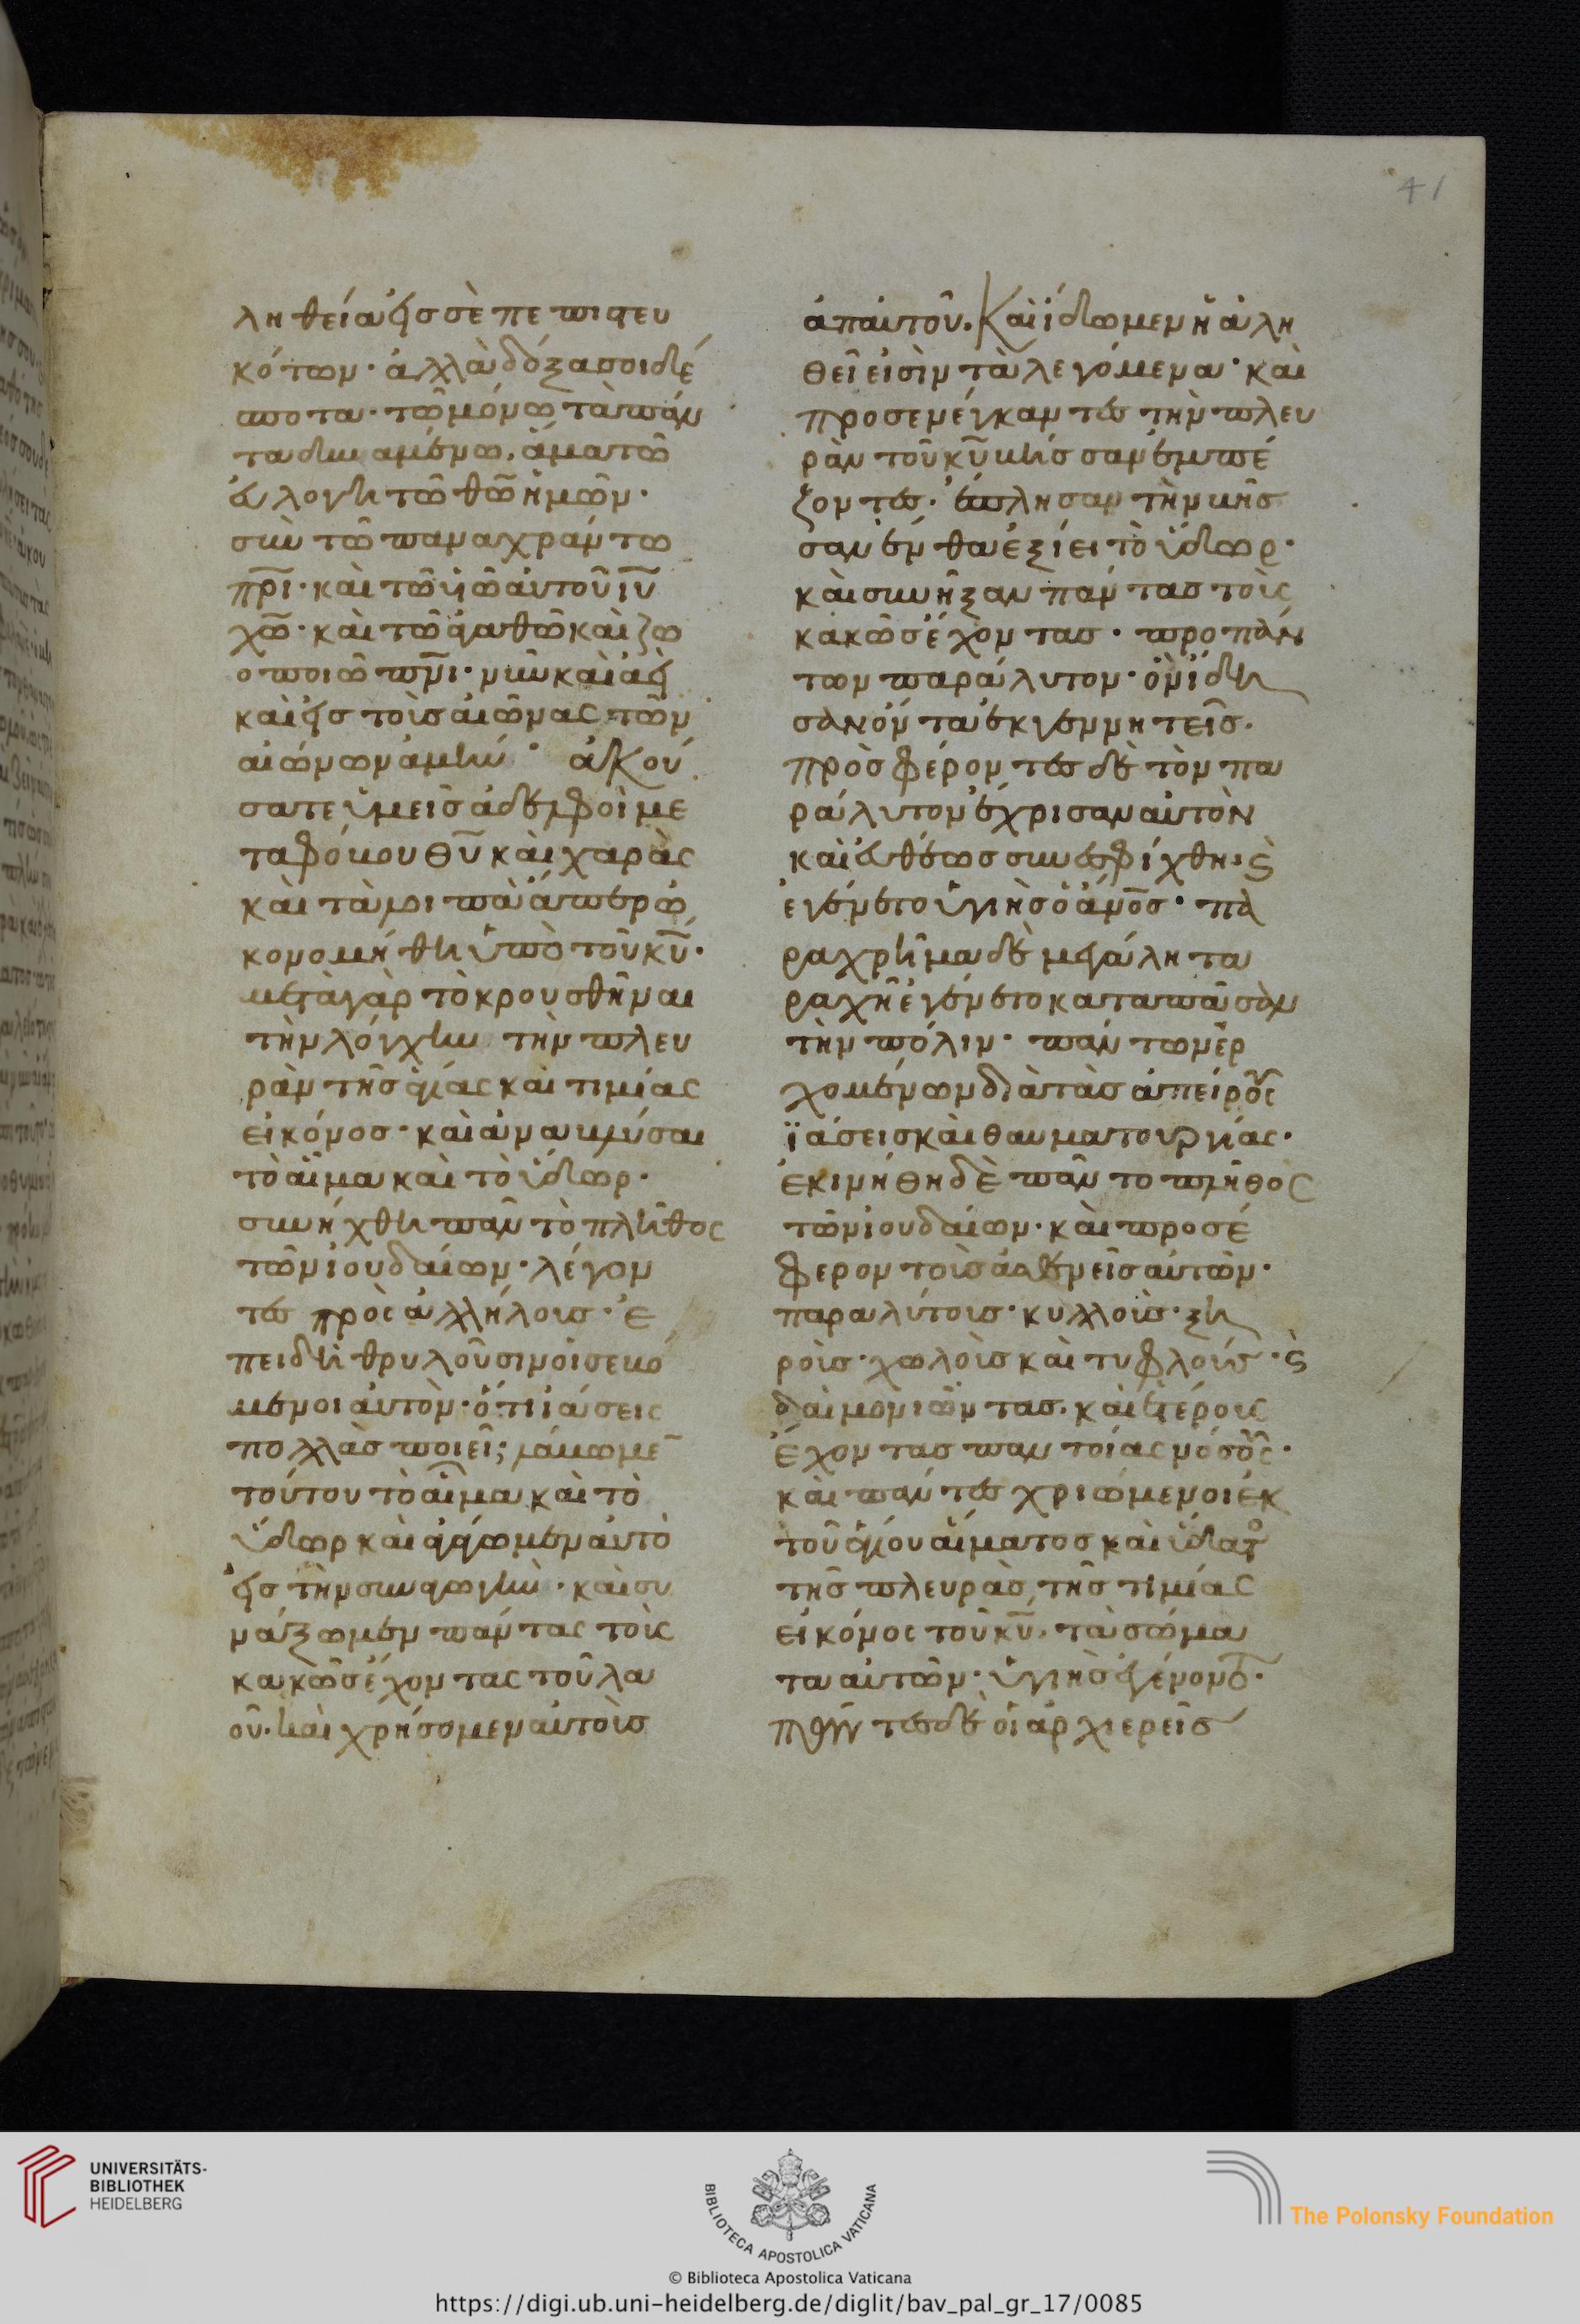 41
ληθεία εἰς σὲ πεπιστευ
κότων· ἀλλὰ δόξα σοι δέ
σποτα· τῶ μόνω τὰ πάν
τα δυναμένω, ἅμα τῶ
εὐλογητῶ θῶ ἡμῶν·
σὺν τῶ παναχράντω
πρι· καὶ τῶ υἱῶ αὐτοῦ ιυ
χῶ· καὶ τῶ ἁγαθῶ καὶ ζω
οποιῶ πνι· νῦν καὶ ἀεὶ
καὶ εἰς τοὺς αἰῶνας τῶν
αἰώνων ἀμήν· ἀκού
σατε ὑμεῖς ἀδελφοὶ με
τα φόβου θυ καὶ χαρὰς
καὶ τὰ
κονομήθη ὑπὸ τοῦ κυ·
μετὰ γὰρ τὸ κρουσθῆναι
τὴν λόγχην τὴν πλευ
ρὰν τῆς ἁγίας καὶ τιμίας
εἰκόνος· καὶ ἀναβλύσαι
τὸ αἷμα καὶ τὸ ὕδωρ·
συνήχθη πᾶν τὸ πλῆθος
τῶν ἰουδαίων· λέγον
τες πρὸς ἀλλήλους· Ἐ
πειδὴ θρυλοῦσιν οἱ σεβό
μενοι αὐτὸν· ὅτι ἰάσεις
πολλὰς ποιεῖ; λάβωμε
τούτου τὸ αἷμα καὶ τὸ
ὕδωρ καὶ ἀγάγωμεν αὐτὸ
εἰς τὴν συναγωγὴν· καὶ συ
νάξωμεν πάντας τοὺς
κακῶς ἔχοντας τοῦ λα
οῦ· καὶ χρήσομεν αὐτοὺς
ἀπαυτοῦ. Καὶ ἴδωμεν ἢ ἀλη
θεῖ εἰσὶν τὰ λεγόμενα· καὶ
προσενέγκαντες τὴν πλευ
ρὰν τοῦ κυ βῆσσαν ἐμπαί
ζοντες· ἔπλησαν τὴν βῆσ
σαν ἔνθα ἐξίει τὸ ὕδωρ·
καὶ συνῆξαν πάντας τοὺς
κακῶς ἔχοντας· προπάν
των παράλυτον· ὃν ἴδη
σαν ὄντα ἐκ γεννητεῖς·
Πρὸσφέροντες δὲ τὸν πα
ράλυτον ἔχρισαν αὐτὸν
καὶ εὐθέως συνεσφίχθη· ϛ
ἐγένετο ὑγιὴς ὁ ἀνος· πα
ραχρῆμα δὲ μεγάλη τα
ραχὴ ἐγένετο κατα πᾶσαν
τὴν πόλιν· πάντων ἐρ
χομένων διὰ τὰς ἀπείρους
ἰάσεις καὶ θαυματουργίας·
ἐκινήθη δὲ πᾶν το πλῆθος
τῶν ἰουδαίων· καὶ προσέ
φερον τοὺς ἀσθενεῖς αὐτῶν·
παραλύτους· κυλλοὺς· ξη
ροὺς· χωλοὺς καὶ τυφλούς· ϛ
δαιμονιῶντας· καὶ ἑτέρους
ἔχοντας παντοίας νόσους·
καὶ πάντες χριώμενοι ἐκ
τοῦ ἁγίου αἵματος καὶ ὕδατος
τῆς πλευρὰς τῆς τιμίας
εἰκόνος τοῦ κυ, τὰ σώμα
τα αὐτῶν· ὑγιὴς ἐγένοντο·
δὲ οἱ ἀρχιερεῖς
UNIVERSITÄTS-
BIBLIOTHEK
HEIDELBERG
BIBLIOTECA APOSTOLICA VATICANA
The Polonsky Foundation
© Biblioteca Apostolica Vaticana
https://digi.ub.uni-heidelberg.de/diglit/bav_pal_gr_17/0085